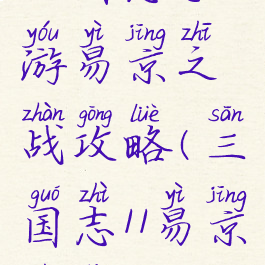 yóu yì jīng zhī
游易京之
zhàn gōng lüè ( sān
战攻略(三
guó zhì // yì jīng
国志11易京